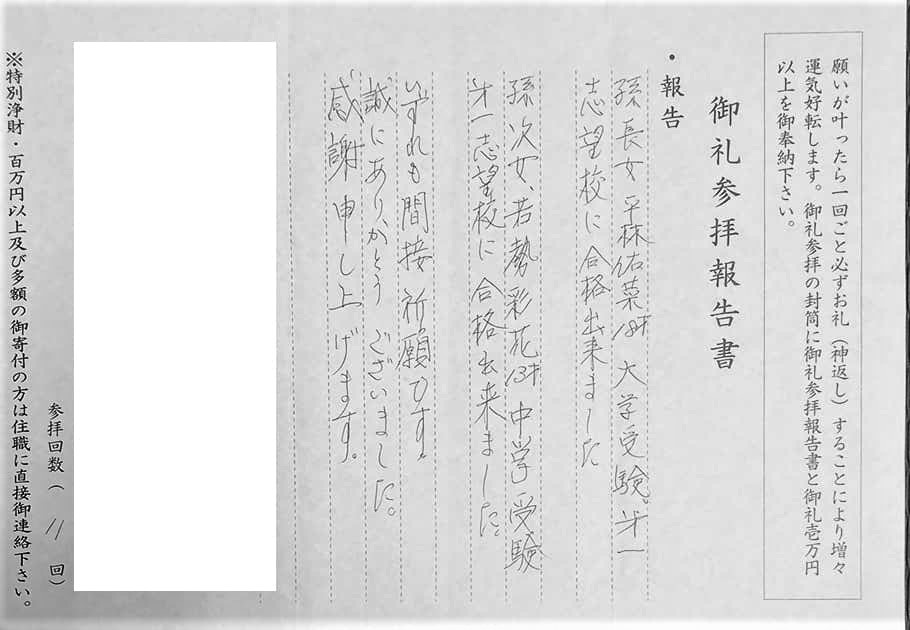 願いが叶ったら一回ごと必ずお礼（神返し）することにより増々
運気好転します。御礼参拝の封筒に御礼参拝報告書と御礼壱万円
以上を御奉納下さい。
御礼参拝報告書
・報告
孫 長女 平森佑菜18才 大学受験。才一
志望校に合格出来ました
孫 次女、若勢彩花13才 中学受験
才一志望校に合格出来ました。
いずれも間接祈願です。
誠にありがとうございました。
感謝申し上げます。
参拝回数（ 11 回）
※特別浄財・百万円以上及び多額の御寄付の方は住職に直接御連絡下さい。